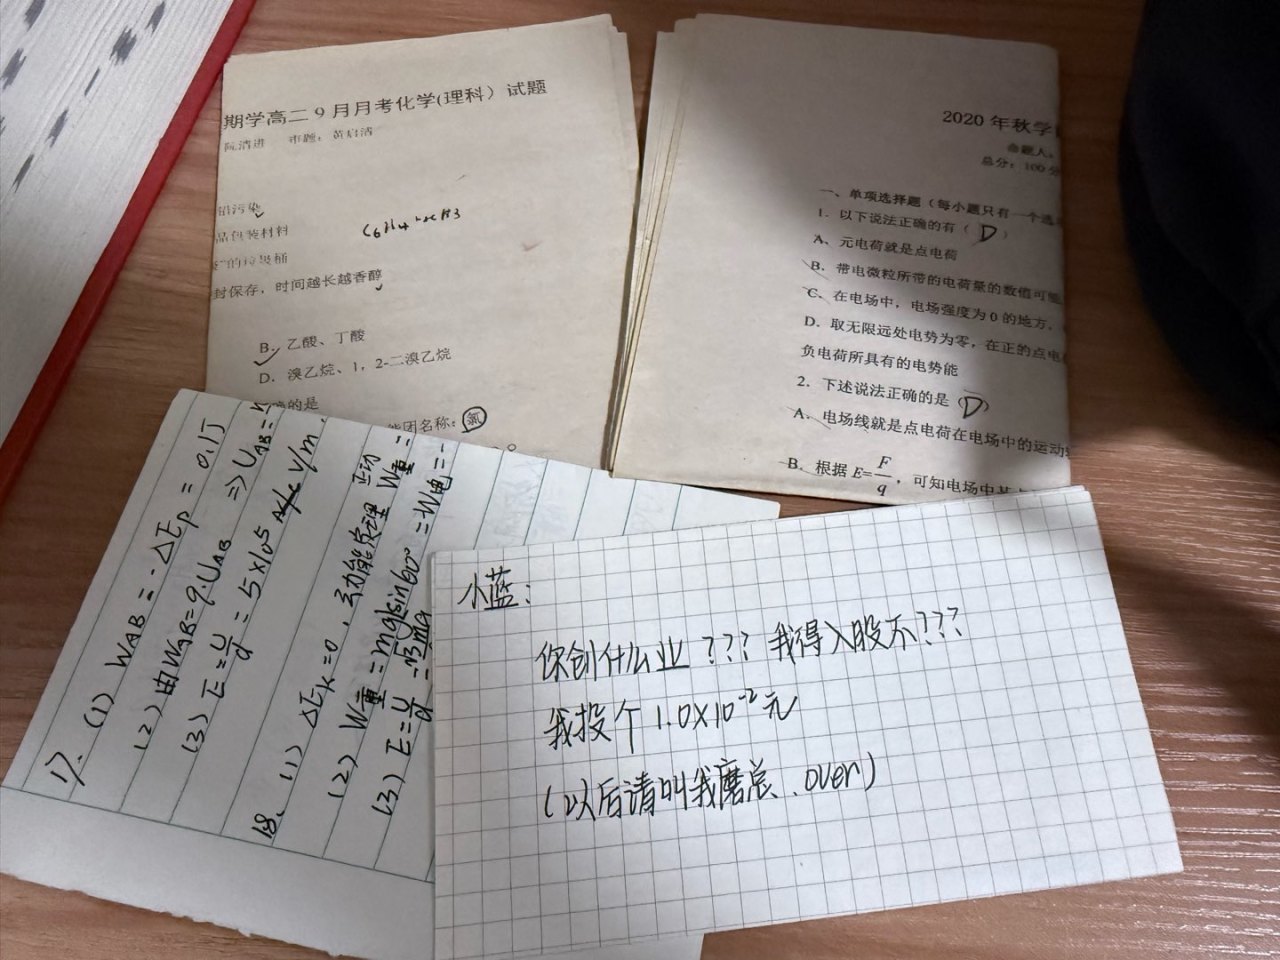 期学高二9月月考化学(理科）试题
阮清进 市题：黄启清
铅污染
品包装材料
的垃圾桶
封保存，时间越长越香醇
B、乙酸、丁酸
D．溴乙烷、1，2-二溴乙烷
确的是
能团名称：氯
2020年秋学
命题人
总分：100分
一、单项选择题（每小题只有一个选
1．以下说法正确的有（D）
A、元电荷就是点电荷
B．带电微粒所带的电荷量的数值可能
C．在电场中，电场强度为0的地方，
D．取无限远处电势为零，在正的点电
负电荷所具有的电势能
2．下述说法正确的是（D）
A．电场线就是点电荷在电场中的运动
B．根据E=F/q，可知电场中某
17. (1) WAB = -ΔEp = 0.1J
(2) 由WAB=q·UAB => UAB=
(3) E=U/d = 5×105 V/m
18. (1) ΔEk=0，动能定理
(2) W重=mgLsin60°=W电=-
(3) E=U/d
小蓝：
你创什么业？？？我得入股不？？？
我投个1.0×10⁻²元
（以后请叫我磨总．over）